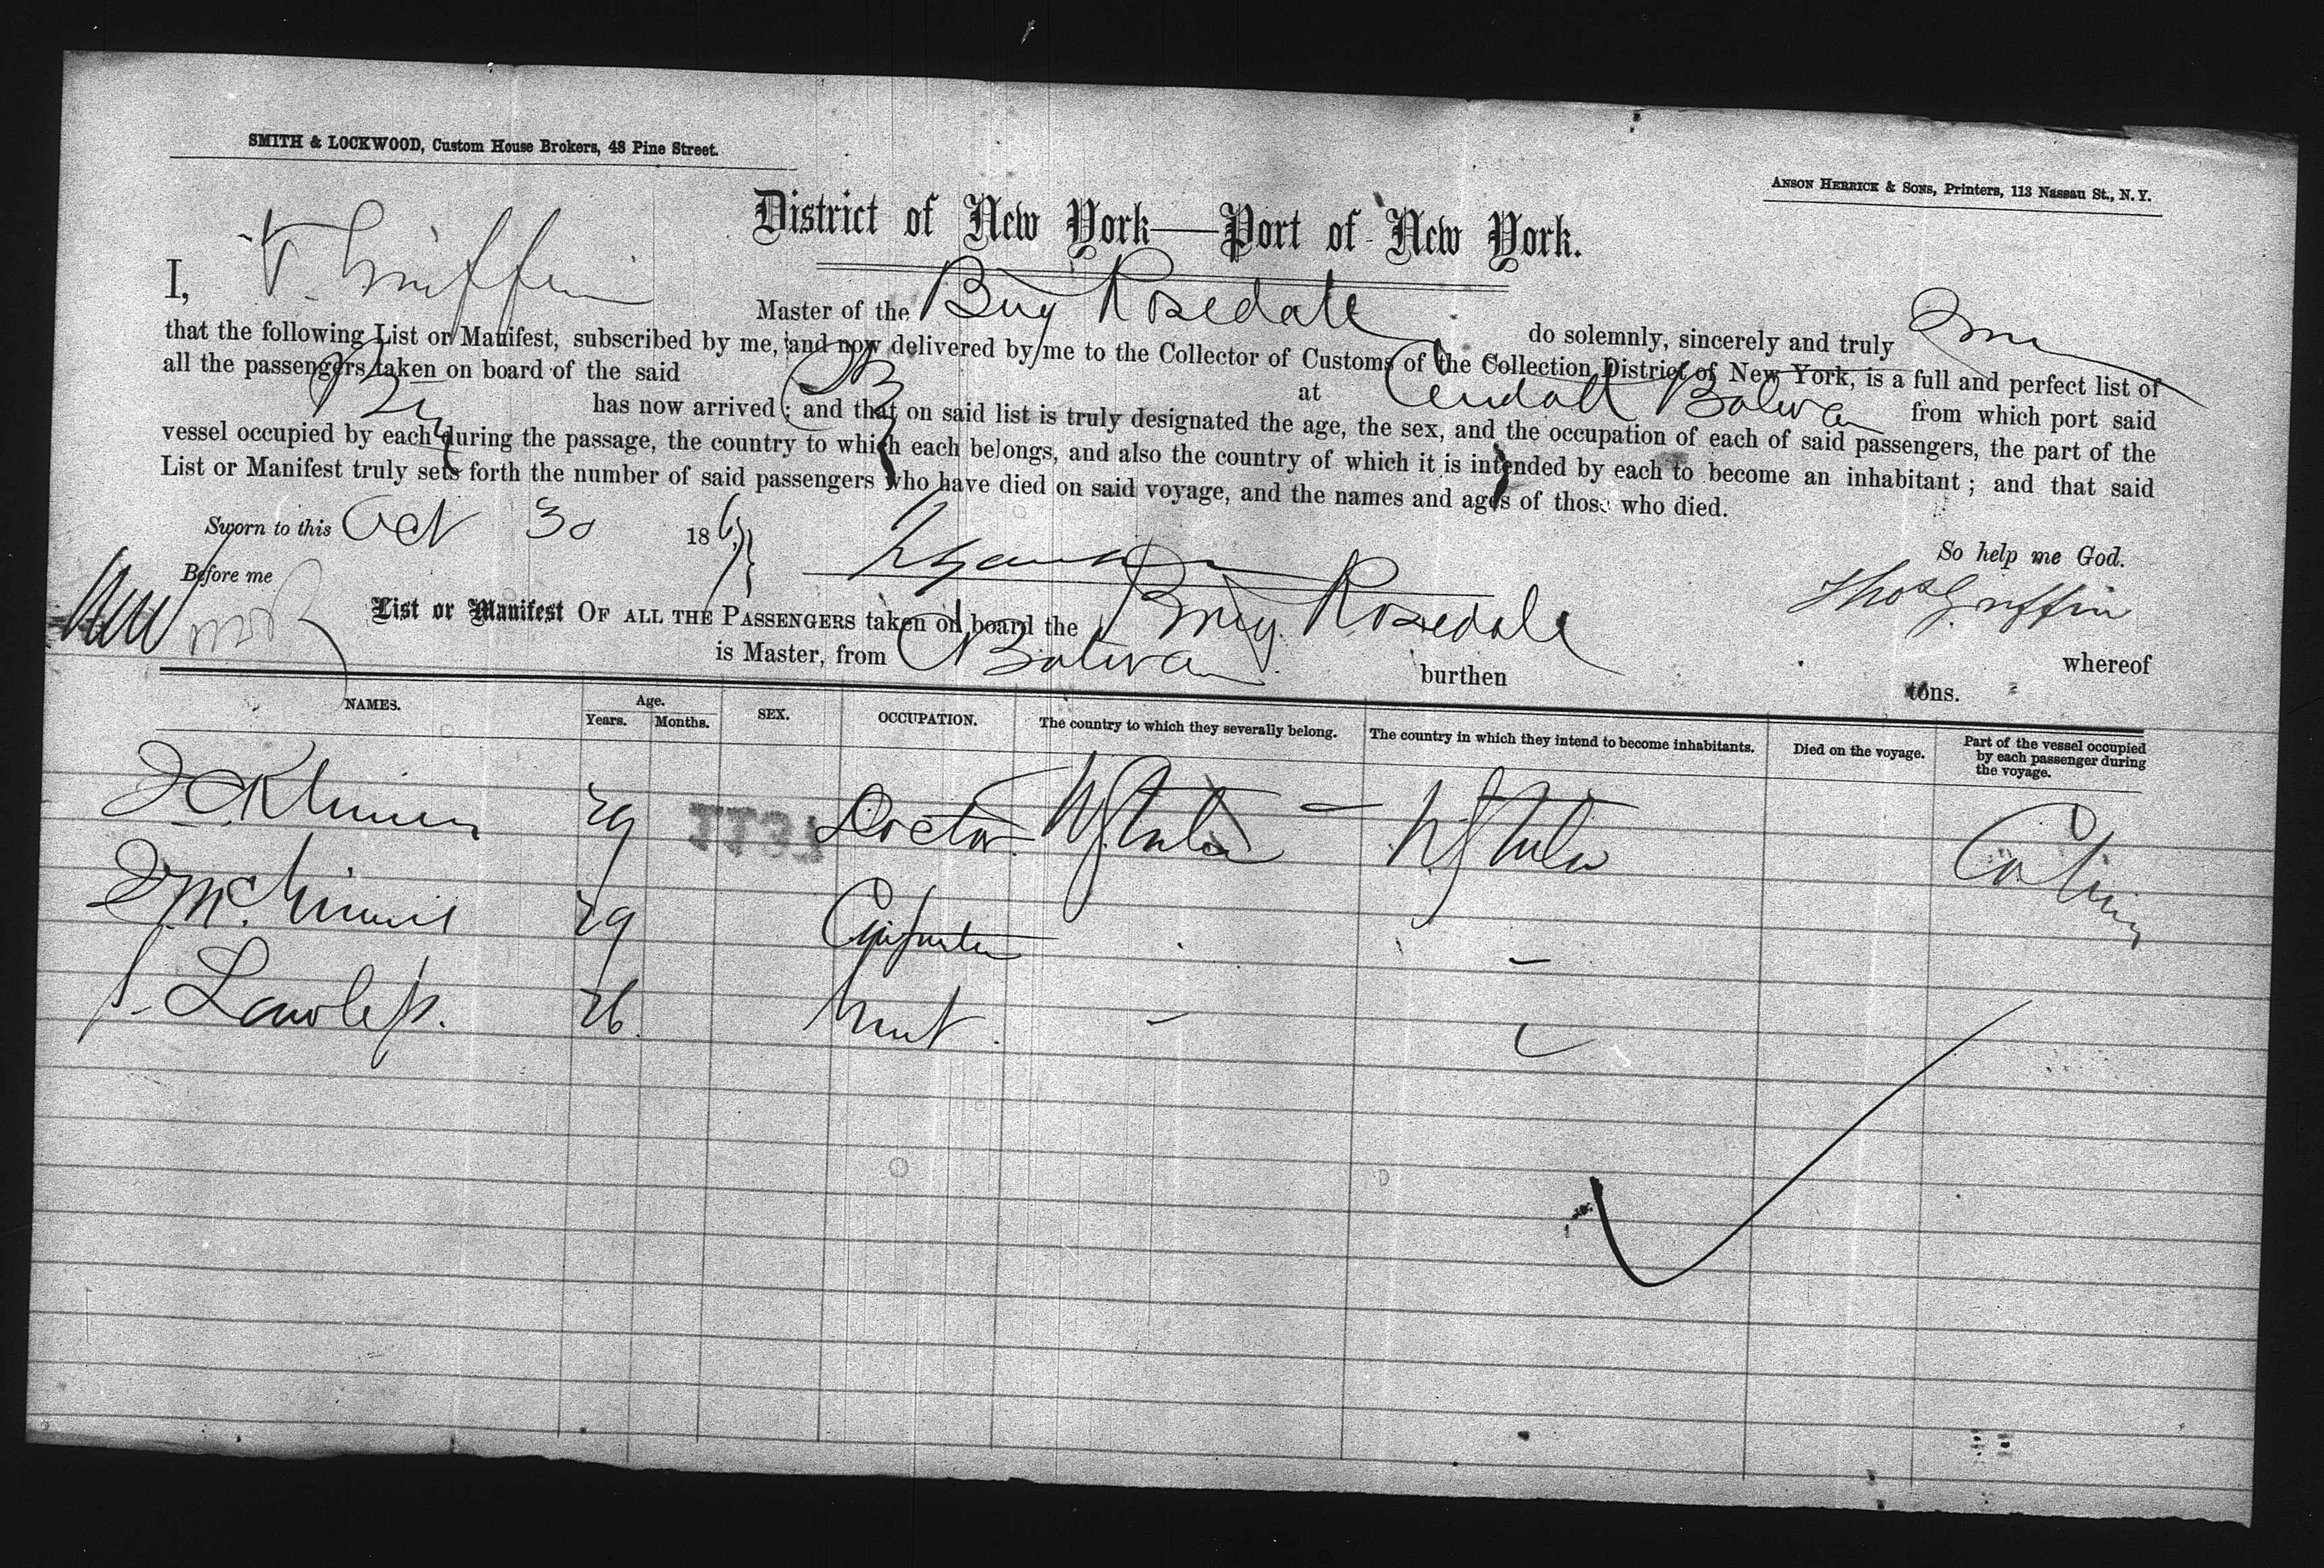 SMITH & LOCKWOOD, Custom House Brokers, 48 Pine Street.
ANSON HERRICK & SONS, Printers, 113 Nassau St., N. Y.
District of New York—Port of New York.
I, T. Griffin Master of the Brig Rosedale do solemnly, sincerely and truly
that the following List or Manifest, subscribed by me, and now delivered by me to the Collector of Customs of the Collection District of New York, is a full and perfect list of
all the passengers taken on board of the said at Bolivar from which port said
Brig has now arrived; and that on said list is truly designated the age, the sex, and the occupation of each of said passengers, the part of the
vessel occupied by each during the passage, the country to which each belongs, and also the country of which it is intended by each to become an inhabitant; and that said
List or Manifest truly sets forth the number of said passengers who have died on said voyage, and the names and ages of those who died.
Sworn to this Oct 30 186
So help me God.
Before me
Thos Griffin
List or Manifest OF ALL THE PASSENGERS taken on board the Brig Rosedale whereof
is Master, from C Bolivar burthen tons.
NAMES. Age. Years. Months. SEX. OCCUPATION. The country to which they severally belong. The country in which they intend to become inhabitants. Died on the voyage. Part of the vessel occupied by each passenger during the voyage.
1137
29 Doctor U States U States Cabin
29 Carpenter
26